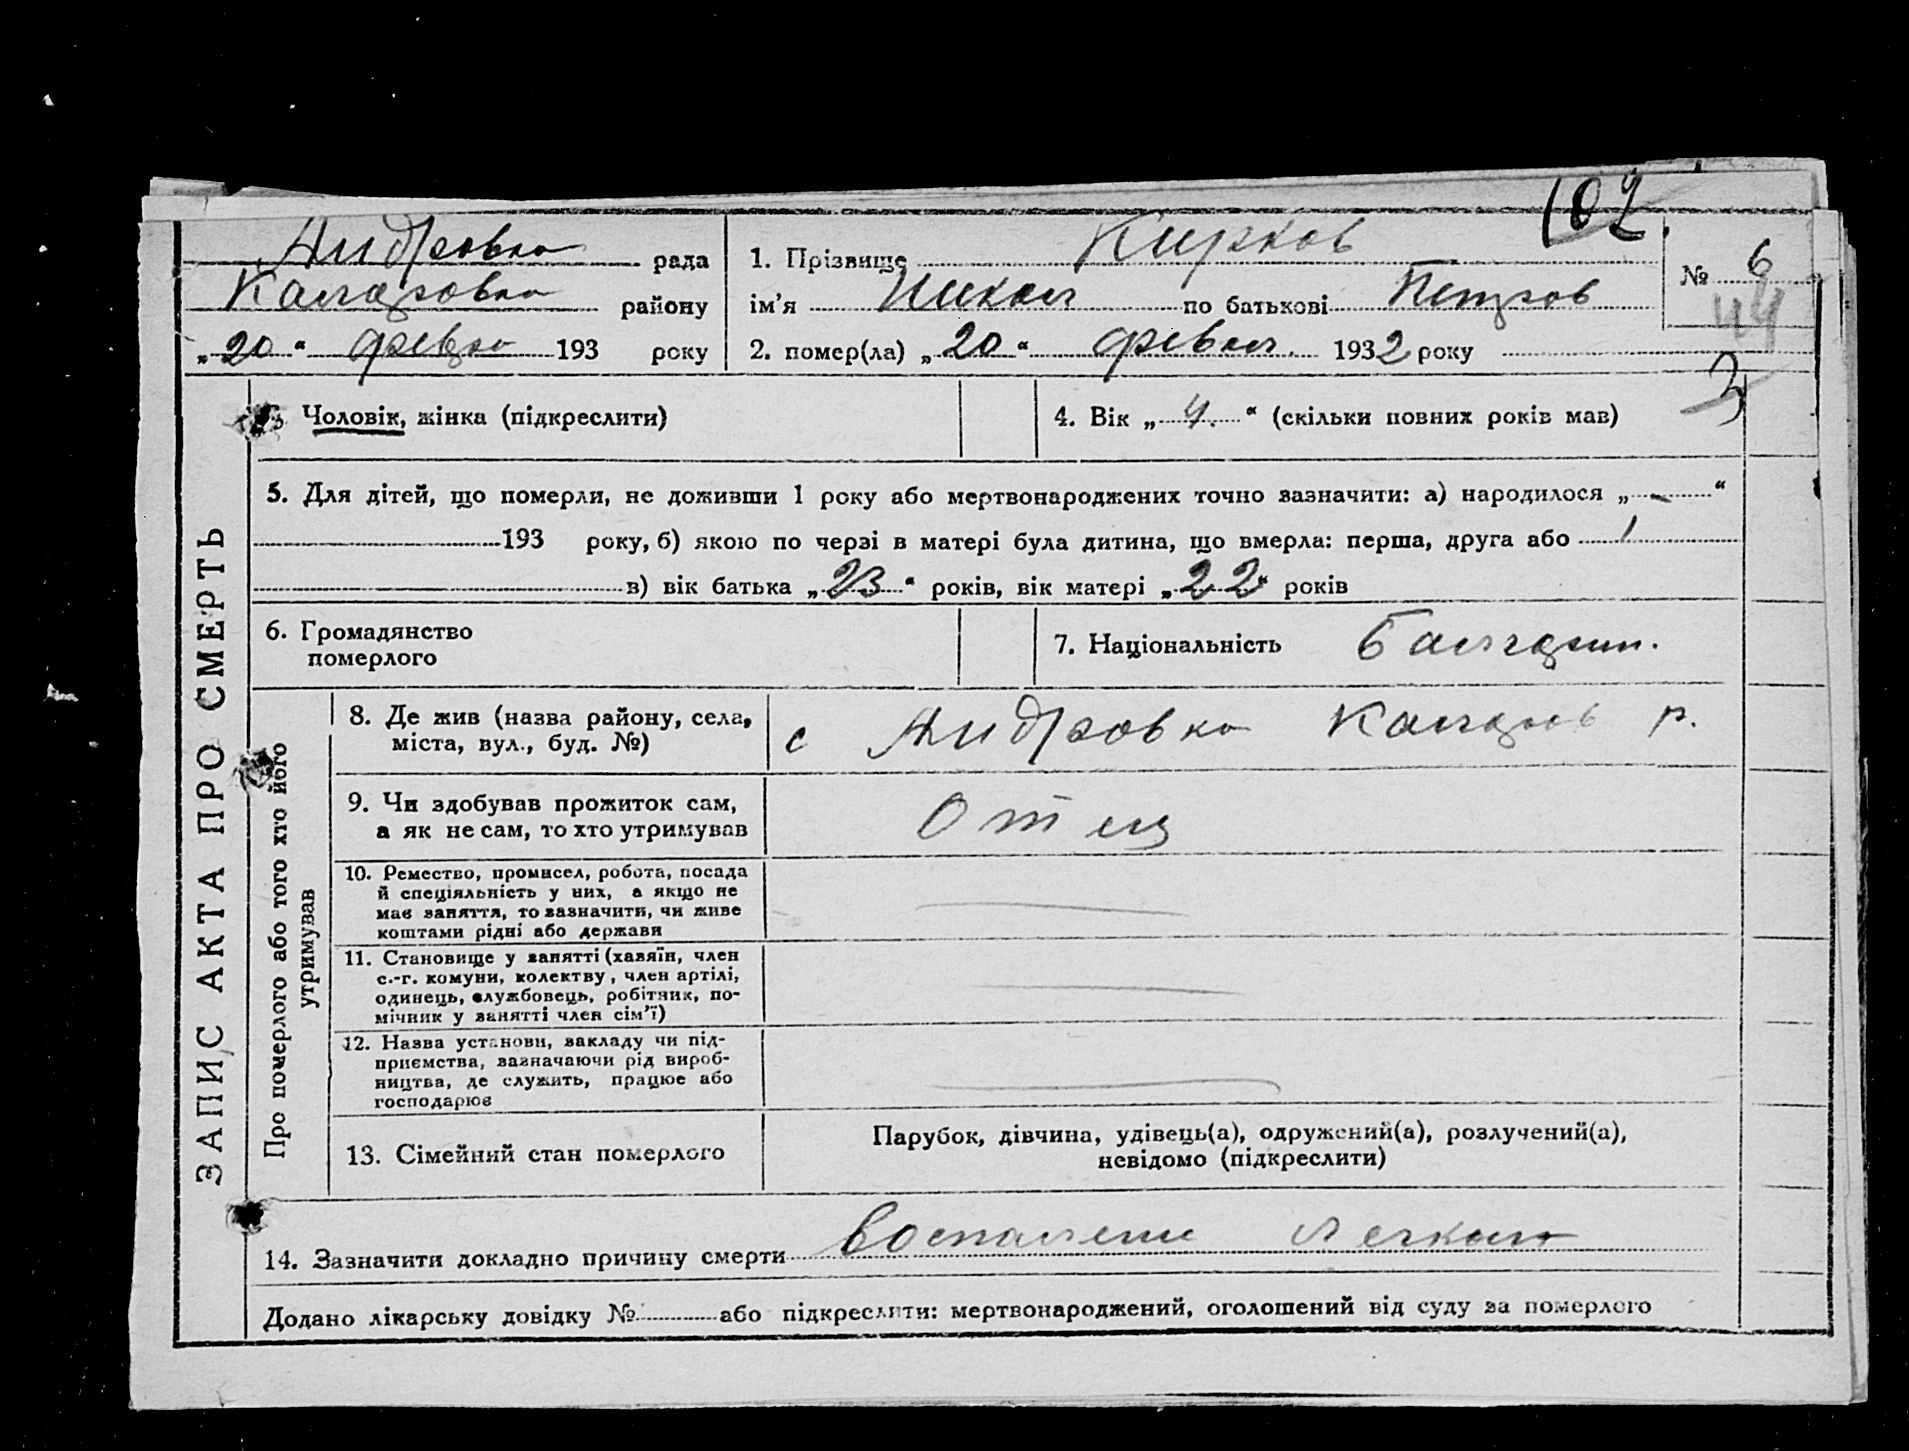 107.
Андровка рада
Каларовка району
„20“ февра 193 року
1. Прізвище Кирков
ім’я Никол по батькові Петров
2. помер(ла) „20“ февал. 1932 року
№ 6
44
3
3 Чоловік, жінка (підкреслити)
4. Вік „4.“ (скільки повних років мав)
5. Для дітей, що померли, не доживши 1 року або мертвонароджених точно зазначити: а) народилося „-“
193 року, б) якою по черзі в матері була дитина, що вмерла: перша, друга або 1
в) вік батька „23“ років, вік матері „22“ років
6. Громадянство
померлого
7. Національність Балгарин.
8. Де жив (назва району, села,
міста, вул., буд. №)
с Андровка Каларов р.
9. Чи здобував прожиток сам,
а як не сам, то хто утримував
Отец
10. Ремество, промисел, робота, посада
й спеціяльність у них, а якщо не
має заняття, то зазначити, чи живе
коштами рідні або держави
11. Становище у занятті (хазяїн, член
с.-г. комуни, колектву, член артілі,
одинець, службовець, робітник, по-
мічник у занятті член сім’ї)
12. Назва установи, закладу чи під-
приємства, зазначаючи рід вироб-
ництва, де служить, працює або
господарює
13. Сімейний стан померлого
Парубок, дівчина, удівець(а), одружений(а), розлучений(а),
невідомо (підкреслити)
14. Зазначити докладно причину смерти воспалени легкого
Додано лікарську довідку № або підкреслити: мертвонароджений, оголошений від суду за померлого
ЗАПИС АКТА ПРО СМЕРТЬ
Про померлого або того хто його
утримував